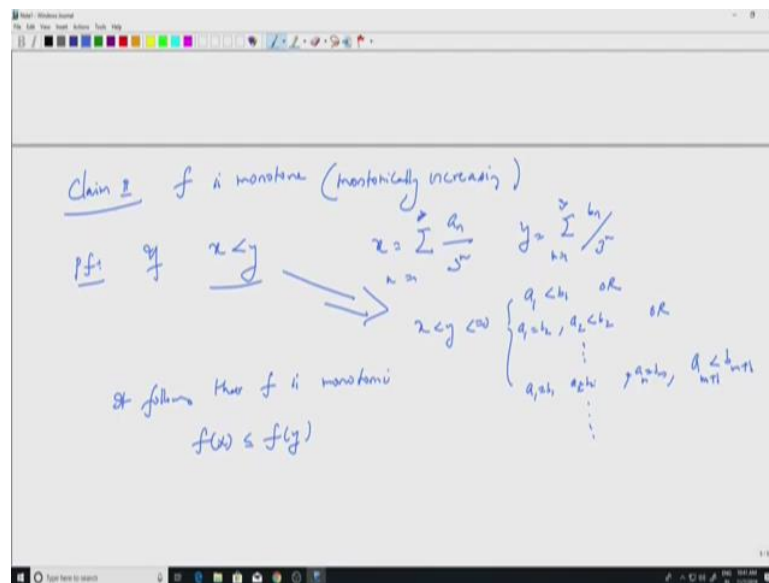 Note1 - Windows Journal
File Edit View Insert Actions Tools Help
B I
Claim : f is monotone (montonically increasing)
Pf: If x < y x = ∑ a_n / 3^n y = ∑ b_n / 3^n
x < y <=> { a_1 < b_1 OR
a_1 = b_2 , a_2 < b_2 OR
⋮
a_1 = b_1 a_2 = b_2 , a_m = b_m , a_{m+1} < b_{m+1}
⋮
It follows that f is monotomic
f(x) ≤ f(y)
Type here to search
ENG 10:41 AM